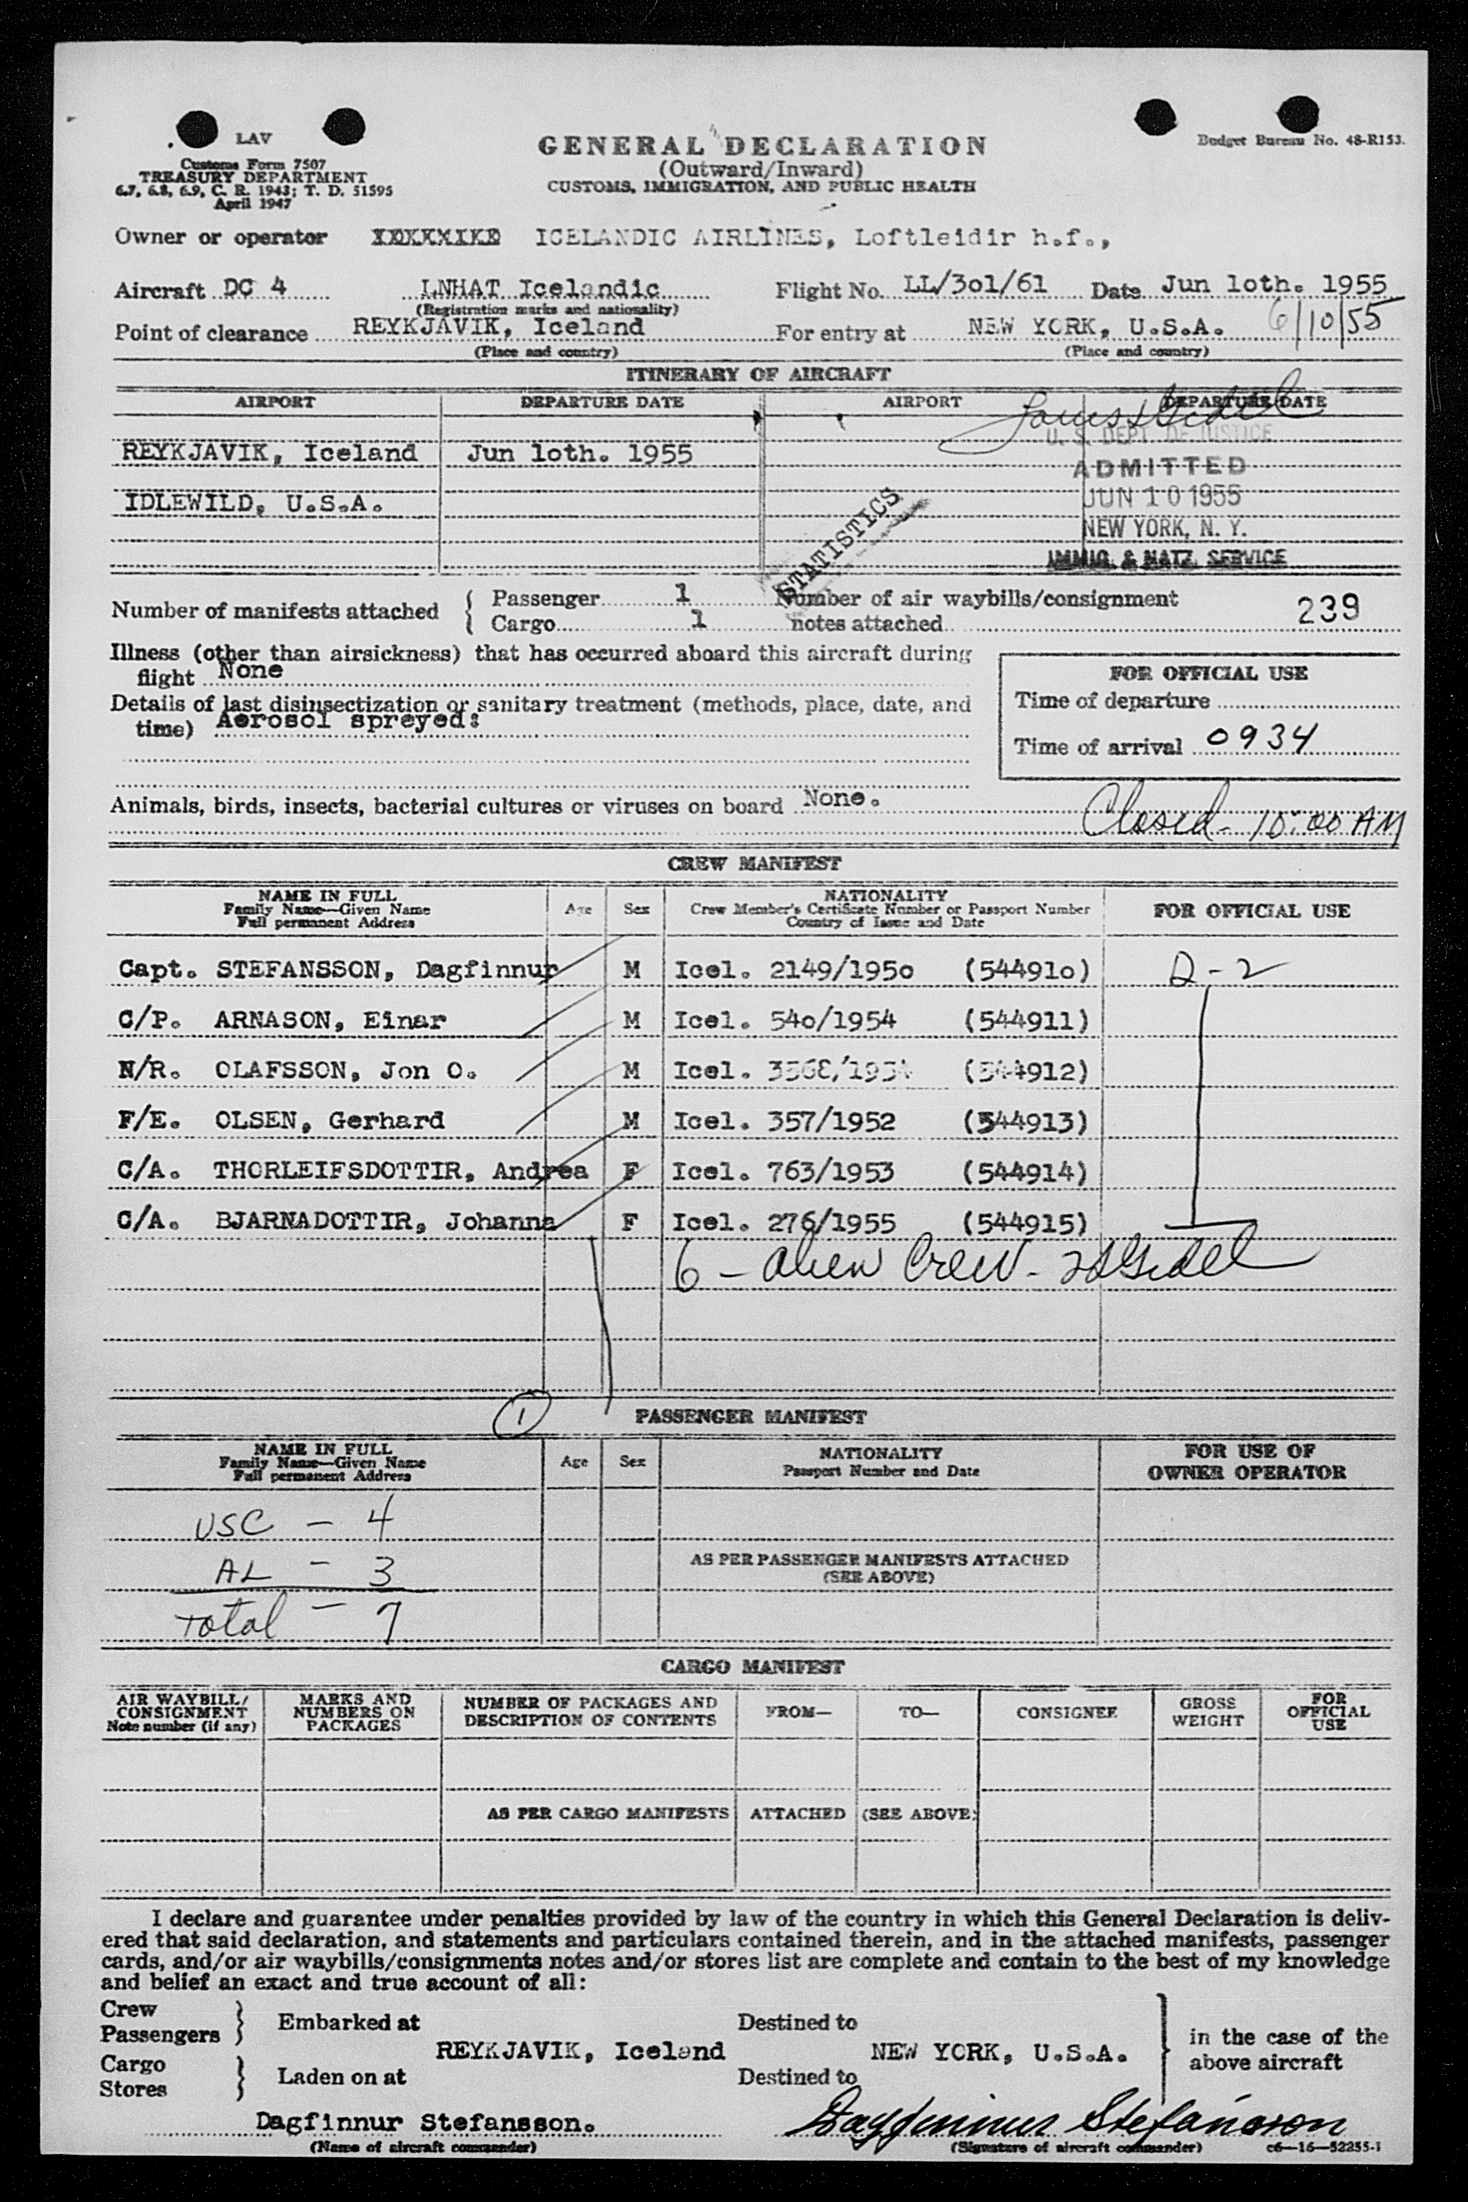 LAV
Customs Form 7507
TREASURY DEPARTMENT
6.7, 6.8, 6.9, C. R. 1943; T. D. 51595
April 1947
GENERAL DECLARATION
(Outward/Inward)
CUSTOMS, IMMIGRATION, AND PUBLIC HEALTH
Budget Bureau No. 48-R153.
Owner or operator ICELANDIC AIRLINES, Loftleidir h.f.,
Aircraft DC 4 LNHAT Icelandic Flight No. LL/3o1/61 Date Jun 1oth. 1955
(Registration marks and nationality)
Point of clearance REYKJAVIK, Iceland For entry at NEW YORK, U.S.A. 6/10/55
(Place and country) (Place and country)
ITINERARY OF AIRCRAFT
AIRPORT DEPARTURE DATE AIRPORT DEPARTURE DATE
U. S. DEPT. OF JUSTICE
REYKJAVIK, Iceland Jun 1oth. 1955
ADMITTED
JUN 10 1955
IDLEWILD, U.S.A.
NEW YORK, N. Y.
IMMIG. & NATZ. SERVICE
STATISTICS
Number of manifests attached { Passenger 1 Number of air waybills/consignment
Cargo 1 notes attached 239
Illness (other than airsickness) that has occurred aboard this aircraft during
flight None
Details of last disinsectization or sanitary treatment (methods, place, date, and
time) Aerosol spreyed:
FOR OFFICIAL USE
Time of departure
Time of arrival 0934
Animals, birds, insects, bacterial cultures or viruses on board None.
Closed - 10:00 AM
CREW MANIFEST
NAME IN FULL
Family Name—Given Name
Full permanent Address
Age
Sex
NATIONALITY
Crew Member's Certificate Number or Passport Number
Country of Issue and Date
FOR OFFICIAL USE
Capt. STEFANSSON, Dagfinnur M Icel. 2149/195o (54491o) D-2
C/P. ARNASON, Einar M Icel. 54o/1954 (544911)
N/R. OLAFSSON, Jon O. M Icel. (544912)
F/E. OLSEN, Gerhard M Icel. 357/1952 (544913)
C/A. THORLEIFSDOTTIR, Andrea F Icel. 763/1953 (544914)
C/A. BJARNADOTTIR, Johanna F Icel. 276/1955 (544915)
6 - alien Crew -
1
PASSENGER MANIFEST
NAME IN FULL
Family Name—Given Name
Full permanent Address
Age
Sex
NATIONALITY
Passport Number and Date
FOR USE OF
OWNER OPERATOR
USC - 4
AL - 3
Total - 7
AS PER PASSENGER MANIFESTS ATTACHED
(SEE ABOVE)
CARGO MANIFEST
AIR WAYBILL/
CONSIGNMENT
Note number (if any)
MARKS AND
NUMBERS ON
PACKAGES
NUMBER OF PACKAGES AND
DESCRIPTION OF CONTENTS
FROM—
TO—
CONSIGNEE
GROSS
WEIGHT
FOR
OFFICIAL
USE
AS PER CARGO MANIFESTS ATTACHED (SEE ABOVE)
I declare and guarantee under penalties provided by law of the country in which this General Declaration is deliv-
ered that said declaration, and statements and particulars contained therein, and in the attached manifests, passenger
cards, and/or air waybills/consignments notes and/or stores list are complete and contain to the best of my knowledge
and belief an exact and true account of all:
Crew
Passengers } Embarked at Destined to
REYKJAVIK, Iceland NEW YORK, U.S.A.
in the case of the
above aircraft
Cargo
Stores } Laden on at Destined to
Dagfinnur Stefansson. Dagfinnur Stefánsson
(Name of aircraft commander) (Signature of aircraft commander) c6—16—52255-1